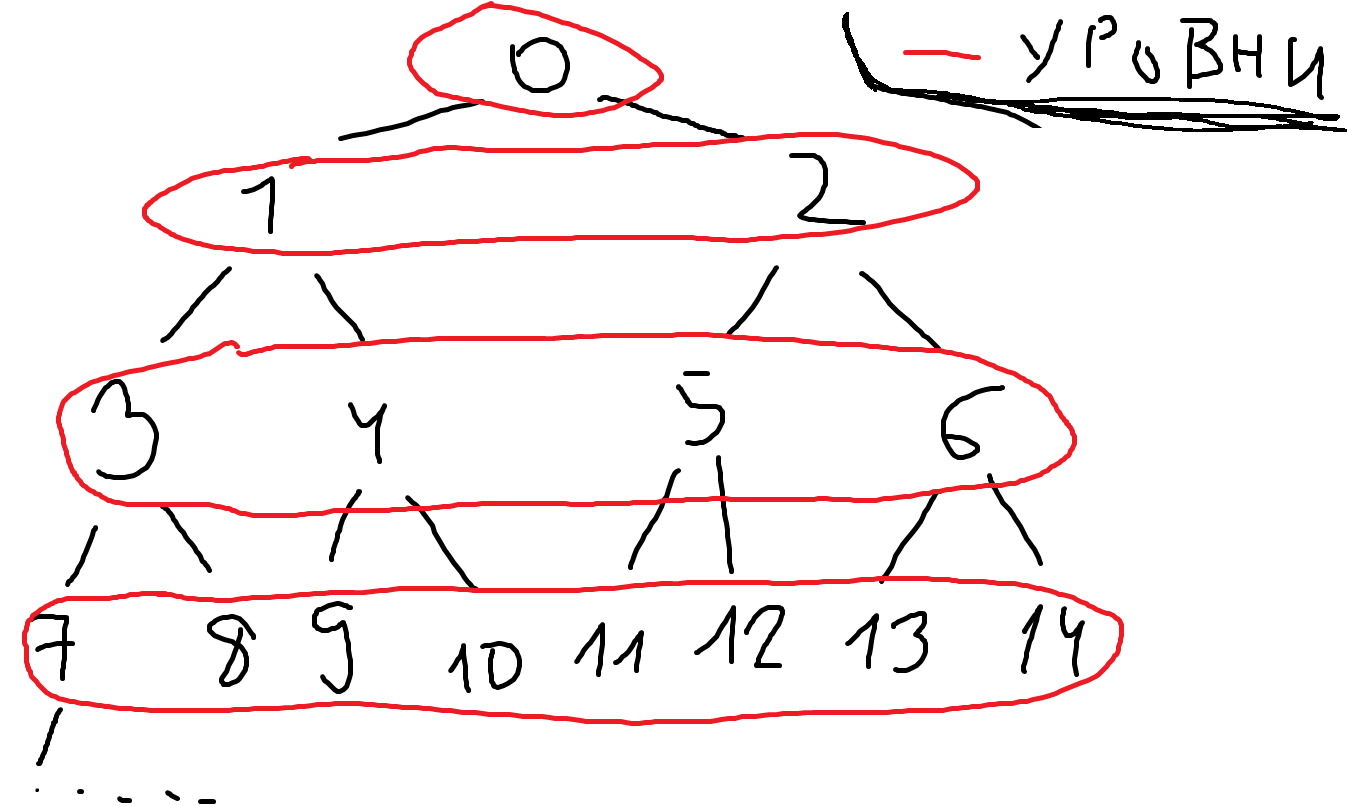 0
— УРОВНИ
1 2
3 4 5 6
7 8 9 10 11 12 13 14